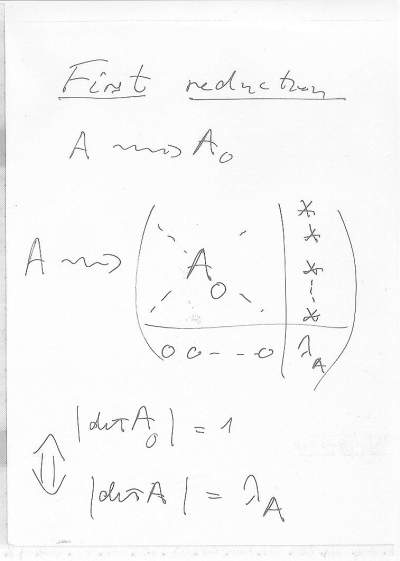 First reduction
A ⇝ A₀
A ⇝ ( A₀ | * * * ¦ *
0 0 - - 0 | λ_A )
|det A₀| = 1
⇕
|det A| = λ_A